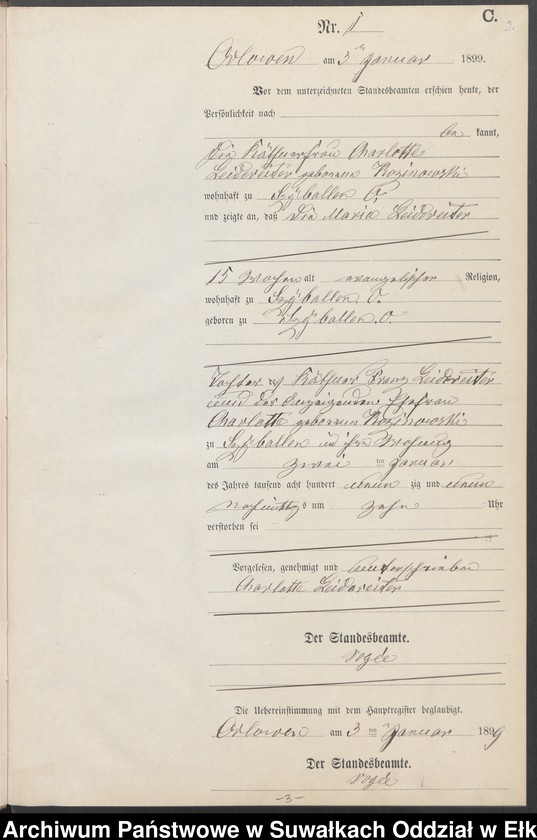 C.
2.
Nr. 1
Orlowen am 3ten Januar 1899.
Vor dem unterzeichneten Standesbeamten erschien heute, der
Persönlichkeit nach
be kannt,
die Käthnerfrau Charlotte
Leidereiter geborene Kozinowski
wohnhaft zu Szyballen O.
und zeigte an, daß die Maria Leidereiter
15 Wochen alt evangelischer Religion,
wohnhaft zu Szyballen O.
geboren zu Szyballen O.
Tochter des Käthner Franz Leidereiter
und der Anzeigenden Ehefrau
Charlotte geborene Kozinowski
zu Szyballen in ihre Wohnung
am zwei ten Januar
des Jahres tausend acht hundert neun zig und neun
Nachmittags um zehn Uhr
verstorben sei
Vorgelesen, genehmigt und unterschrieben
Charlotte Leidereiter
Der Standesbeamte.
Vogée
Die Uebereinstimmung mit dem Hauptregister beglaubigt.
Orlowen am 3 ten Januar 1899
Der Standesbeamte.
Vogée
-3-
Archiwum Państwowe w Suwałkach Oddział w Ełk